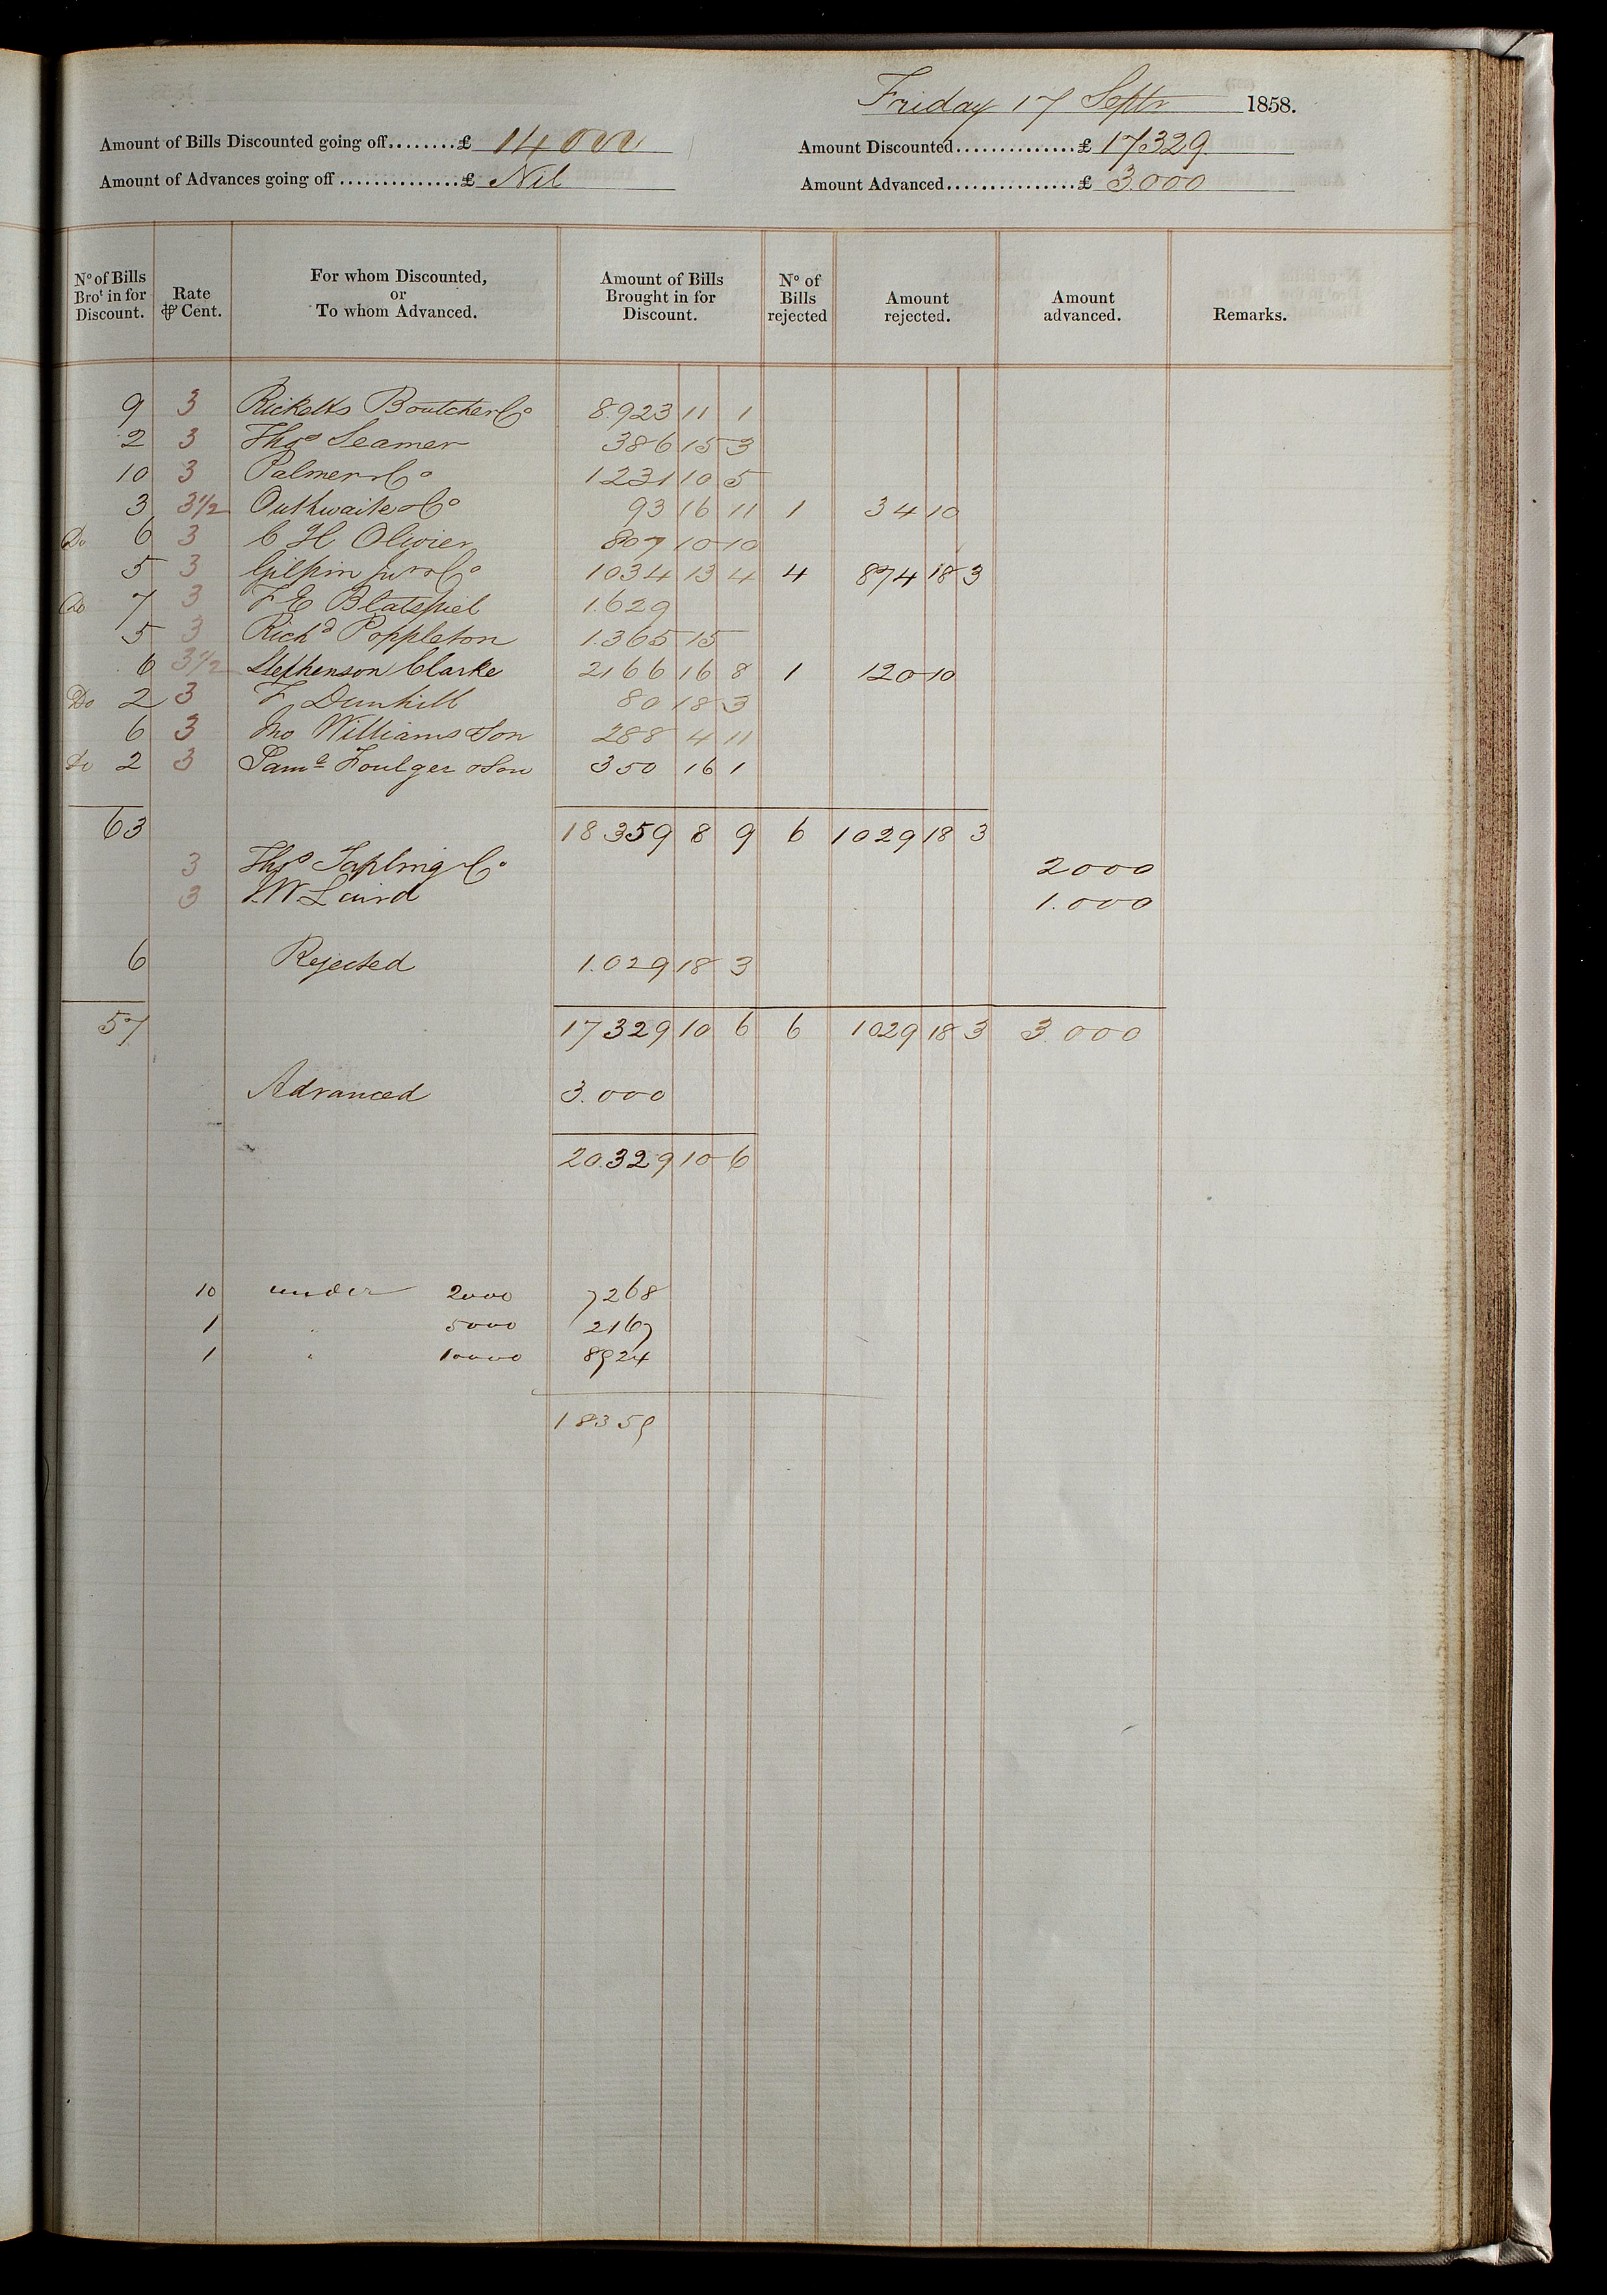 Friday 17 Septr 1858.
Amount of Bills Discounted going off........£ 14000 Amount Discounted..............£ 17329
Amount of Advances going off..............£ Nil Amount Advanced................£ 3.000
No of Bills Brot in for Discount. Rate ⅌ Cent. For whom Discounted, or To whom Advanced. Amount of Bills Brought in for Discount. No of Bills rejected Amount rejected. Amount advanced. Remarks.
9 3 Ricketts Boutcher & Co 8.923 11 1
2 3 Thos Seamer 386 15 3
10 3 Palmer & Co 1231 10 5
3 3½ Outhwaite & Co 93 16 11 1 34 10
Do 6 3 C H Olivier 807 10 10
5 3 Gilpin Junr & Co 1034 13 4 4 874 18 3
Do 7 3 F E Blatspiel 1.629
5 3 Richd Poppleton 1.365 15
6 3½ Stephenson Clarke 2166 16 8 1 120 10
Do 2 3 F Dunhill 80 18 3
6 3 Jno Williams & Son 288 4 11
Do 2 3 Saml Foulger & Son 350 16 1
63 18359 8 9 6 1029 18 3
3 Thos Tapling & Co 2000
3 Laird 1.000
6 Rejected 1.029 18 3
57 17329 10 6 6 1029 18 3 3.000
Advanced 3.000
20.329 10 6
10 under 2000 7268
1 " 5000 2167
1 " 10000 8924
18359